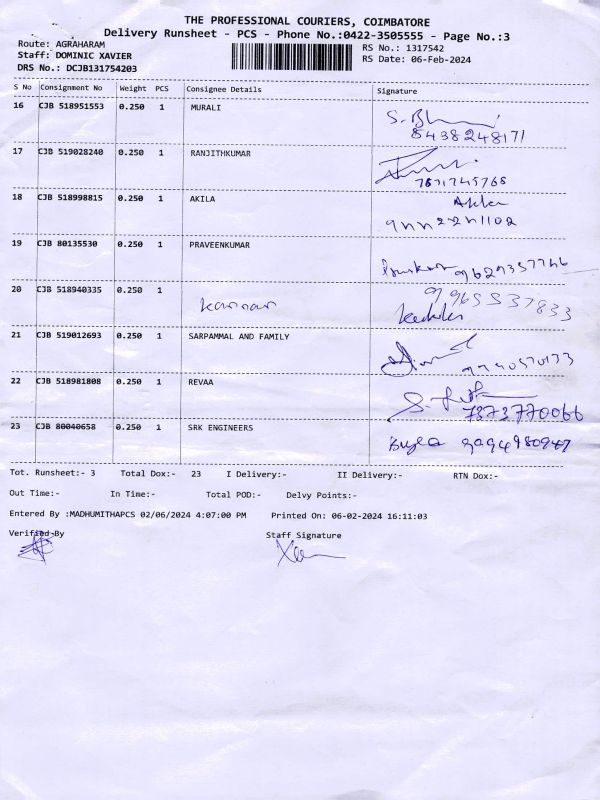 THE PROFESSIONAL COURIERS, COIMBATORE
Delivery Runsheet - PCS - Phone No.:0422-3505555 - Page No.:3
Route: AGRAHARAM
RS No.: 1317542
Staff: DOMINIC XAVIER
RS Date: 06-Feb-2024
DRS No.: DCJB131754203
S No Consignment No Weight PCS Consignee Details Signature
16 CJB 518951553 0.250 1 MURALI
8438248171
17 CJB 519028240 0.250 1 RANJITHKUMAR
18 CJB 518998815 0.250 1 AKILA
19 CJB 80135530 0.250 1 PRAVEENKUMAR
9629357746
20 CJB 518940335 0.250 1 kannan
9965537833
21 CJB 519012693 0.250 1 SARPAMMAL AND FAMILY
22 CJB 518981808 0.250 1 REVAA
7373770066
23 CJB 80040658 0.250 1 SRK ENGINEERS
9994980947
Tot. Runsheet:- 3 Total Dox:- 23 I Delivery:- II Delivery:- RTN Dox:-
Out Time:- In Time:- Total POD:- Delvy Points:-
Entered By :MADHUMITHAPCS 02/06/2024 4:07:00 PM Printed On: 06-02-2024 16:11:03
Verified By Staff Signature